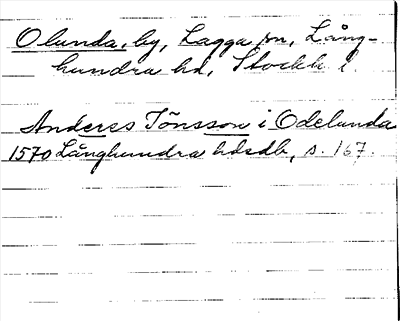 Olunda, by, Lagga sn, Lång-
hundra hd, Stockh. l.
Anderes Jönsson i Odelunda
1570 Långhundra hdsdb, s. 167.